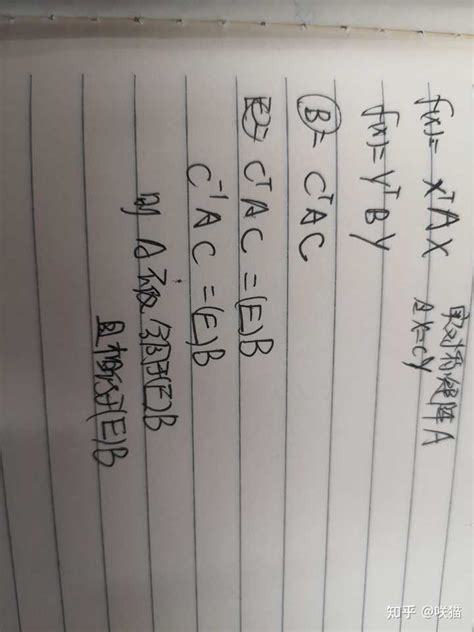 f(x)= XᵀAX 实对称矩阵A
且X=CY
f(x)=YᵀBY
B= CᵀAC
CᵀAC=(E)B
C⁻¹AC=(E)B
则 A 合同于(E)B
且相似于(E)B
知乎 @咲猫